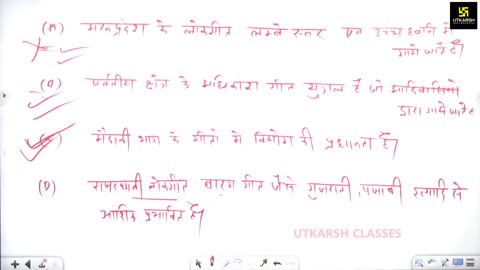 UTKARSH
(A) मरूप्रदेश के लोकगीत लम्बे स्वर एवं उच्च ध्वनि में
गाये जाते हैं।
(B) पर्वतीय क्षेत्र के अधिकांश गीत युगल है जो आदिवासियों
द्वारा गाये जाते
मैदानी भाग के गीतो में वियोग की प्रधानता है।
(D) राजस्थानी लोकगीत बाह्य गीत जैसे गुजराती, पंजाबी इत्यादि से
आंशिक प्रभावित है।
UTKARSH CLASSES